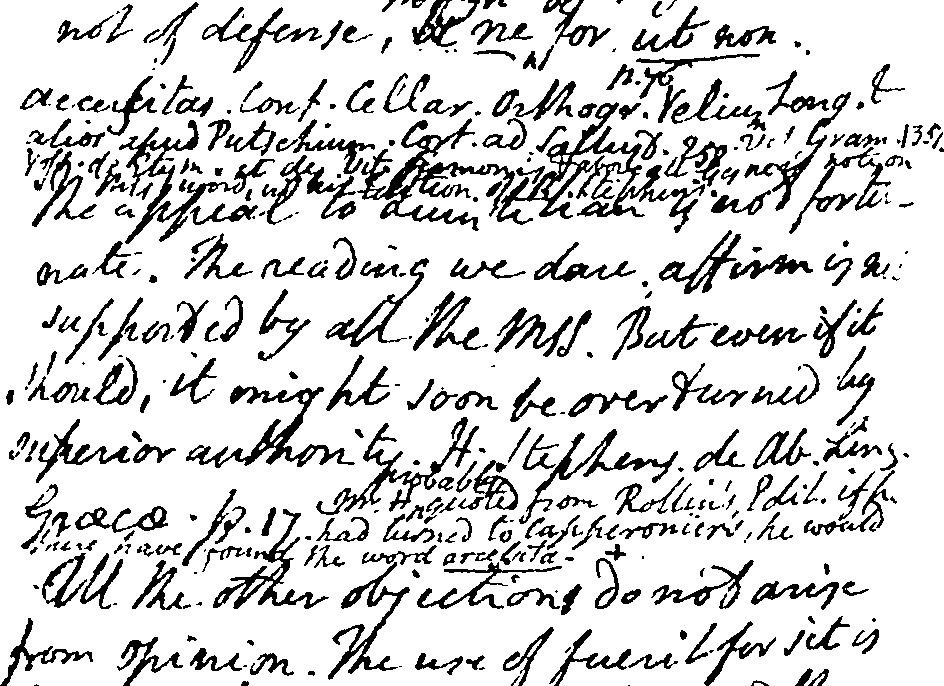 not of defense, be ne for ut non.
p. 70
accersitas. Conf. Cellar. Orthogr. Velius Long. &
alios apud Putschium. Cort. ad Sallust. Gram.
de Etym. et de notion
this word, in edition of R. Stephens.
The appeal to Quintilian is not fortu-
nate. The reading we dare affirm is not
supported by all the MSS. But even if it
should, it might soon be overturned by
superior authority. H. Stephens. de Ab. Ling.
probably
Græcæ. p. 17. Mr. H quoted from Rollin's Edit. if he
had turned to Capperonier's, he would
there have found the word arcessita. +
All the other objections do not arise
from opinion. The use of fuerit for sit is